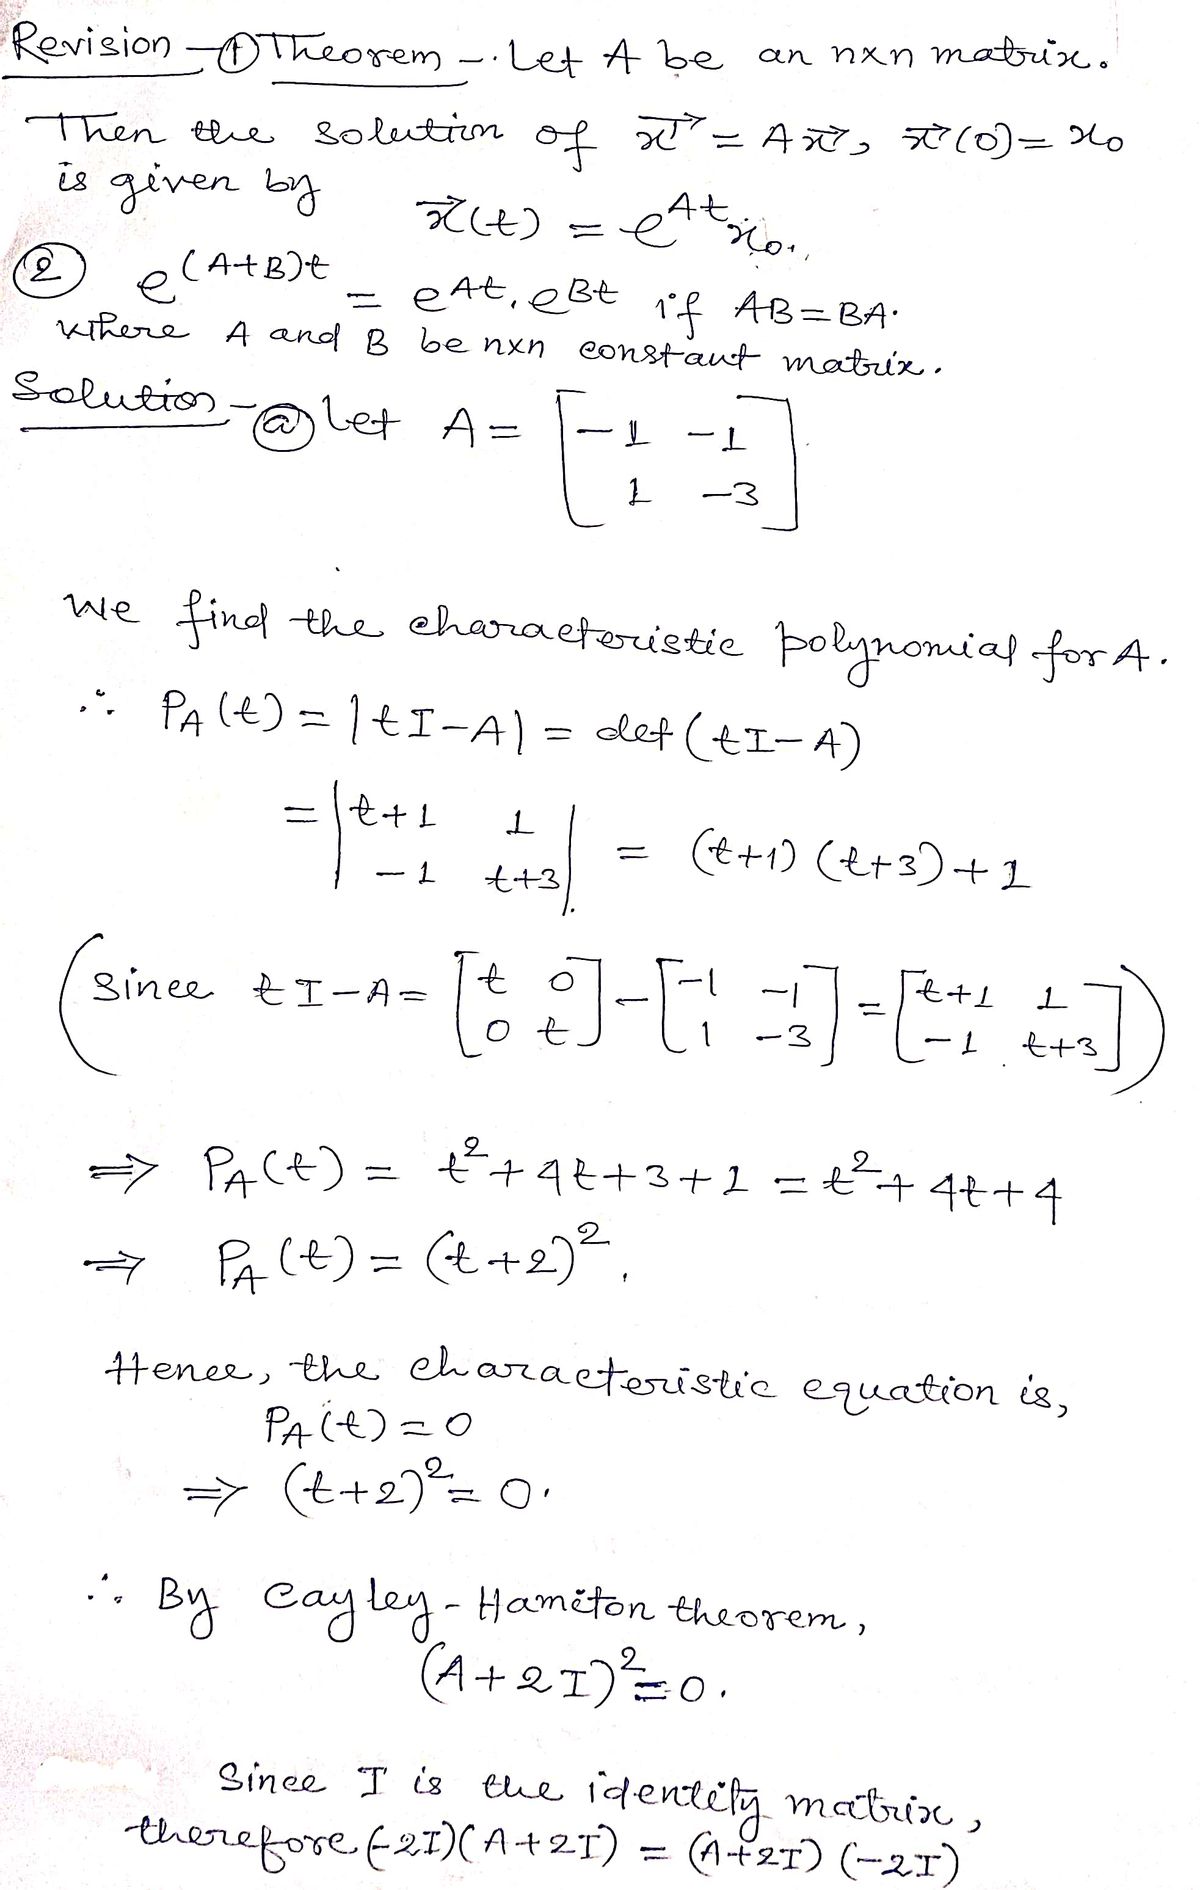 Revision - ① Theorem -. Let A be an nxn matrix.
Then the solution of x⃗' = Ax⃗, x⃗(0) = x₀
is given by
x⃗(t) = e^{At} x₀.
② e^{(A+B)t} = e^{At}. e^{Bt} if AB = BA.
where A and B be nxn constant matrix.
Solution - ⓐ Let A = [-1 -1
1 -3]
We find the characteristic polynomial for A.
∴ P_A(t) = |tI-A| = det(tI-A)
= |t+1 1
-1 t+3| = (t+1)(t+3)+1
(Since tI-A = [t 0
0 t] - [-1 -1
1 -3] = [t+1 1
-1 t+3])
⇒ P_A(t) = t²+4t+3+1 = t²+4t+4
⇒ P_A(t) = (t+2)².
Hence, the characteristic equation is,
P_A(t) = 0
⇒ (t+2)² = 0.
∴ By Cayley-Hamiton theorem,
(A+2I)² = 0.
Since I is the identity matrix,
therefore (-2I)(A+2I) = (A+2I)(-2I)